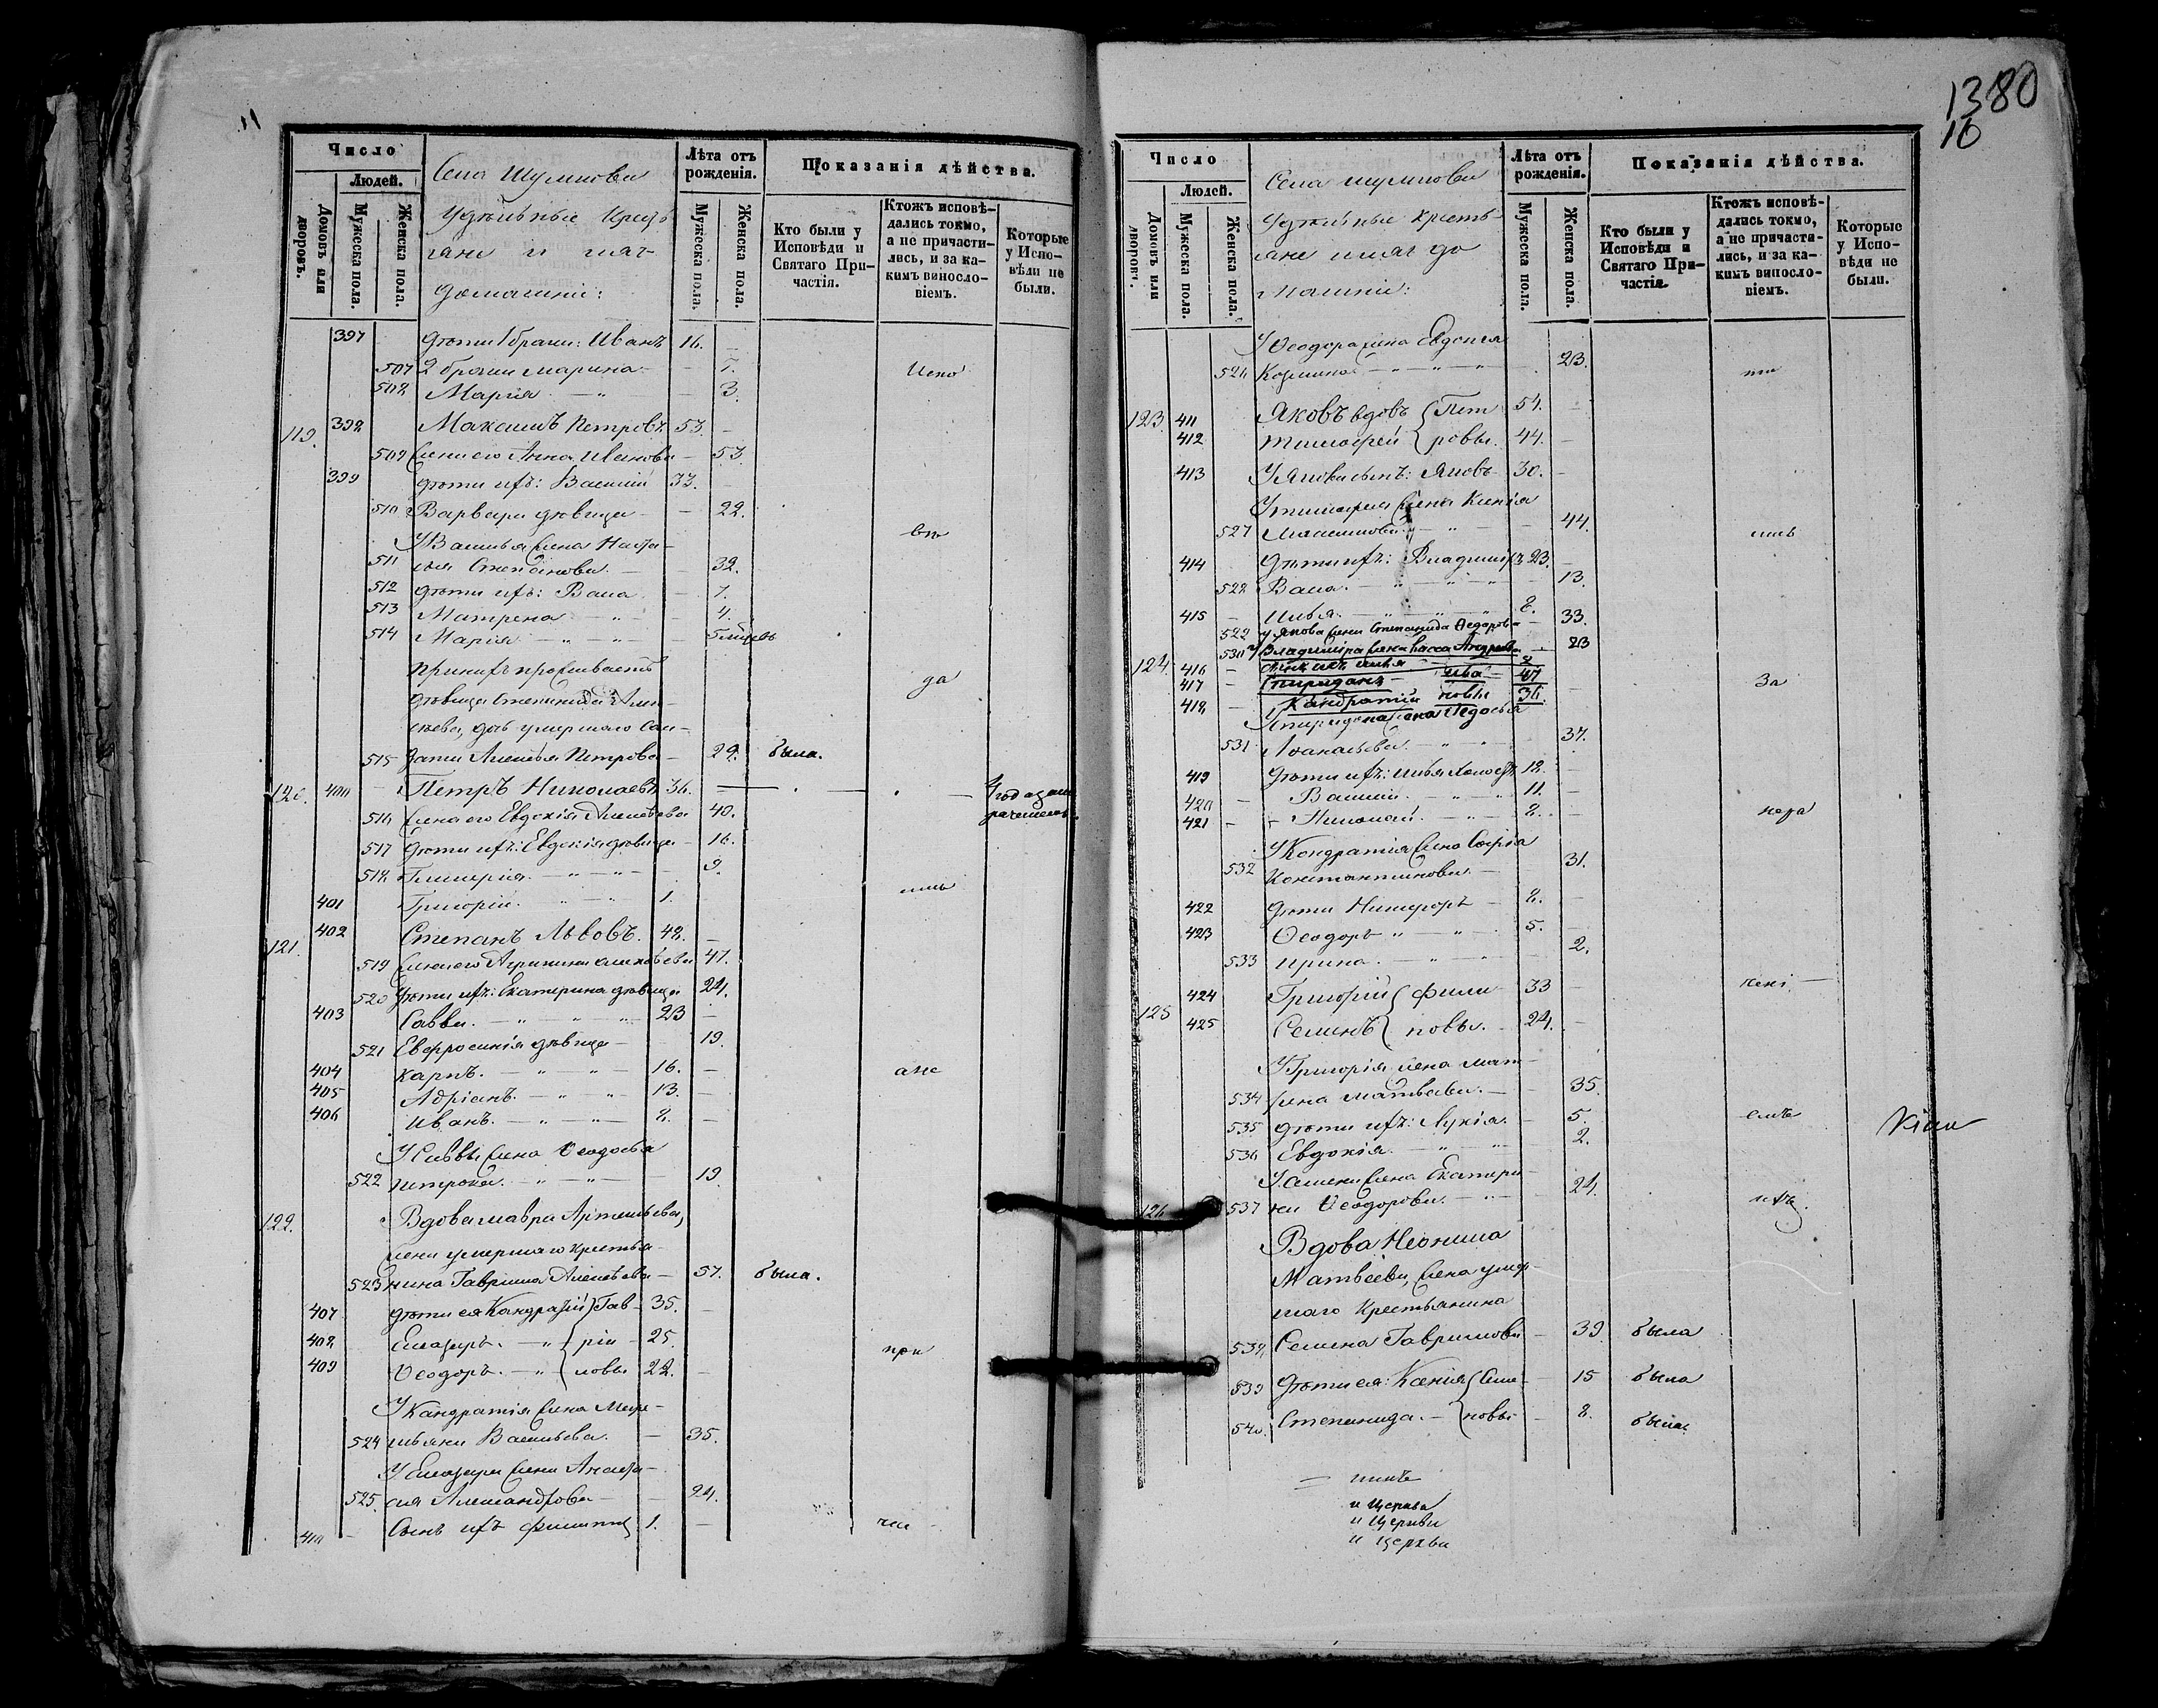 Число
Людей.
Домовъ или дворовъ.
Мужеска пола.
Женска пола.
Села Шумпова
Удѣльные крестьяне и ихъ
домашніе:
Лѣта отъ рожденія.
Мужеска пола.
Женска пола.
Показанія дѣйства.
Кто были у Исповѣди и Святаго Причастія.
Ктожъ исповѣдались токмо, а не причастились, и за какимъ винословіемъ.
Которые у Исповѣди не были.
397 дѣти 1 брака: Иванъ 16.
507 2 брака Марина 7. Испо
508 Марія 3.
119. 398 Максимъ Петровъ 53.
509 Жена его Анна Иванова 53.
399 дѣти ихъ: Василій 33.
510 Варвара дѣвица 22.
У Василья жена Наста-
511 сья Степанова. 32.
512 дѣти ихъ: Васа 7.
513 Матрена 4.
514 Марія 5 мѣсцевъ
При нихъ проживаетъ
дѣвица Степанида Али- да
сѣева, дочь умершаго Сол-
515 дата Алексѣя Петрова 29. была.
120. 400 Петръ Николаевъ 36.
516 Жена его Евдокія Алексѣева 40.
517 дѣти ихъ: Евдокія дѣвица 16.
518 Гликерія. 9.
401 Григорій. 1.
121. 402 Степанъ Львовъ. 48.
519 Жена его Агрипина 47.
520 Дѣти ихъ: Екатерина дѣвица 24.
403 Савва. 23
521 Евфросинія дѣвица 19.
404 Карпъ. 16.
405 Адріанъ. 13.
406 Иванъ. 8.
У Саввы жена Ѳеодосья
522 Петрова. 19.
122. Вдова Мавра Артемьева,
жена умершаго крестья-
523 нина Гавріила Алексѣева 57. была.
407 дѣти ея Кандратій Гав- 35.
408 Елизаръ. ріи- 25.
409 Ѳеодоръ. ловы 22. при
У Кандратія жена
524 Васильева. 35.
У Елизара жена Анаста-
525. сія Александрова 24.
410 Сынъ ихъ Филиппъ 1.
1380
10
Число
Людей.
Домовъ или дворовъ.
Мужеска пола.
Женска пола.
Села Шумпова
Удѣльные кресть-
яне и ихъ до
машніе:
Лѣта отъ рожденія.
Мужеска пола.
Женска пола.
Показанія дѣйства.
Кто были у Исповѣди и Святаго Причастія.
Ктожъ исповѣдались токмо, а не причастились, и за какимъ винословіемъ.
Которые у Исповѣди не были.
У Ѳеодора жена Евдокія
526 Козмина 23.
123. 411 Яковъ вдовъ Пет- 54.
412 Тимофей ровы. 44.
413 У Якова сынъ: Яковъ 30.
У Тимофея жена Ксенія
527 Максимова. 44.
414 Дѣти ихъ: Владиміръ 23.
528 Васа. 13.
415 Илья. 8.
529 У Якова жена Степанида Ѳедорова 33.
530 У Владиміра жена Васса Андреева 23
124. 416
417 Спиридонъ Ива 47 За
418 Кандратій новы 36.
У Спиридона жена Ѳедосья
531 Аѳанасьева. 37.
419 Дѣти ихъ: Илья холостъ 18.
420 Василій. 11.
421 Николай. 8. нера
У Кондратія жена Софія
532 Константинова. 31.
422 Дѣти Никифоръ 8.
423 Ѳеодоръ 5.
533 Ирина. 2.
125 424 Григорій Фили- 33
425 Семенъ повы. 24.
У Григорія жена Мат-
534 рена Матвѣева. 35.
535 Дѣти ихъ: Лукія. 5.
536 Евдокія. 2.
У Семена жена Екатери-
126 537 на Ѳеодорова. 24. ихъ.
Вдова Неонила
Матвѣева, жена умер-
шаго Крестьянина
538 Семена Гаврилова 39. была
539 Дѣти ея: Ксенія Семе- 15 была
540. Степанида. новы 8. была.
и Церква
и Церкви
и Церкви